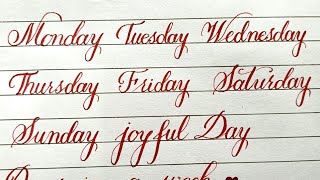 Monday Tuesday Wednesday
Thursday Friday Saturday
Sunday joyful Day